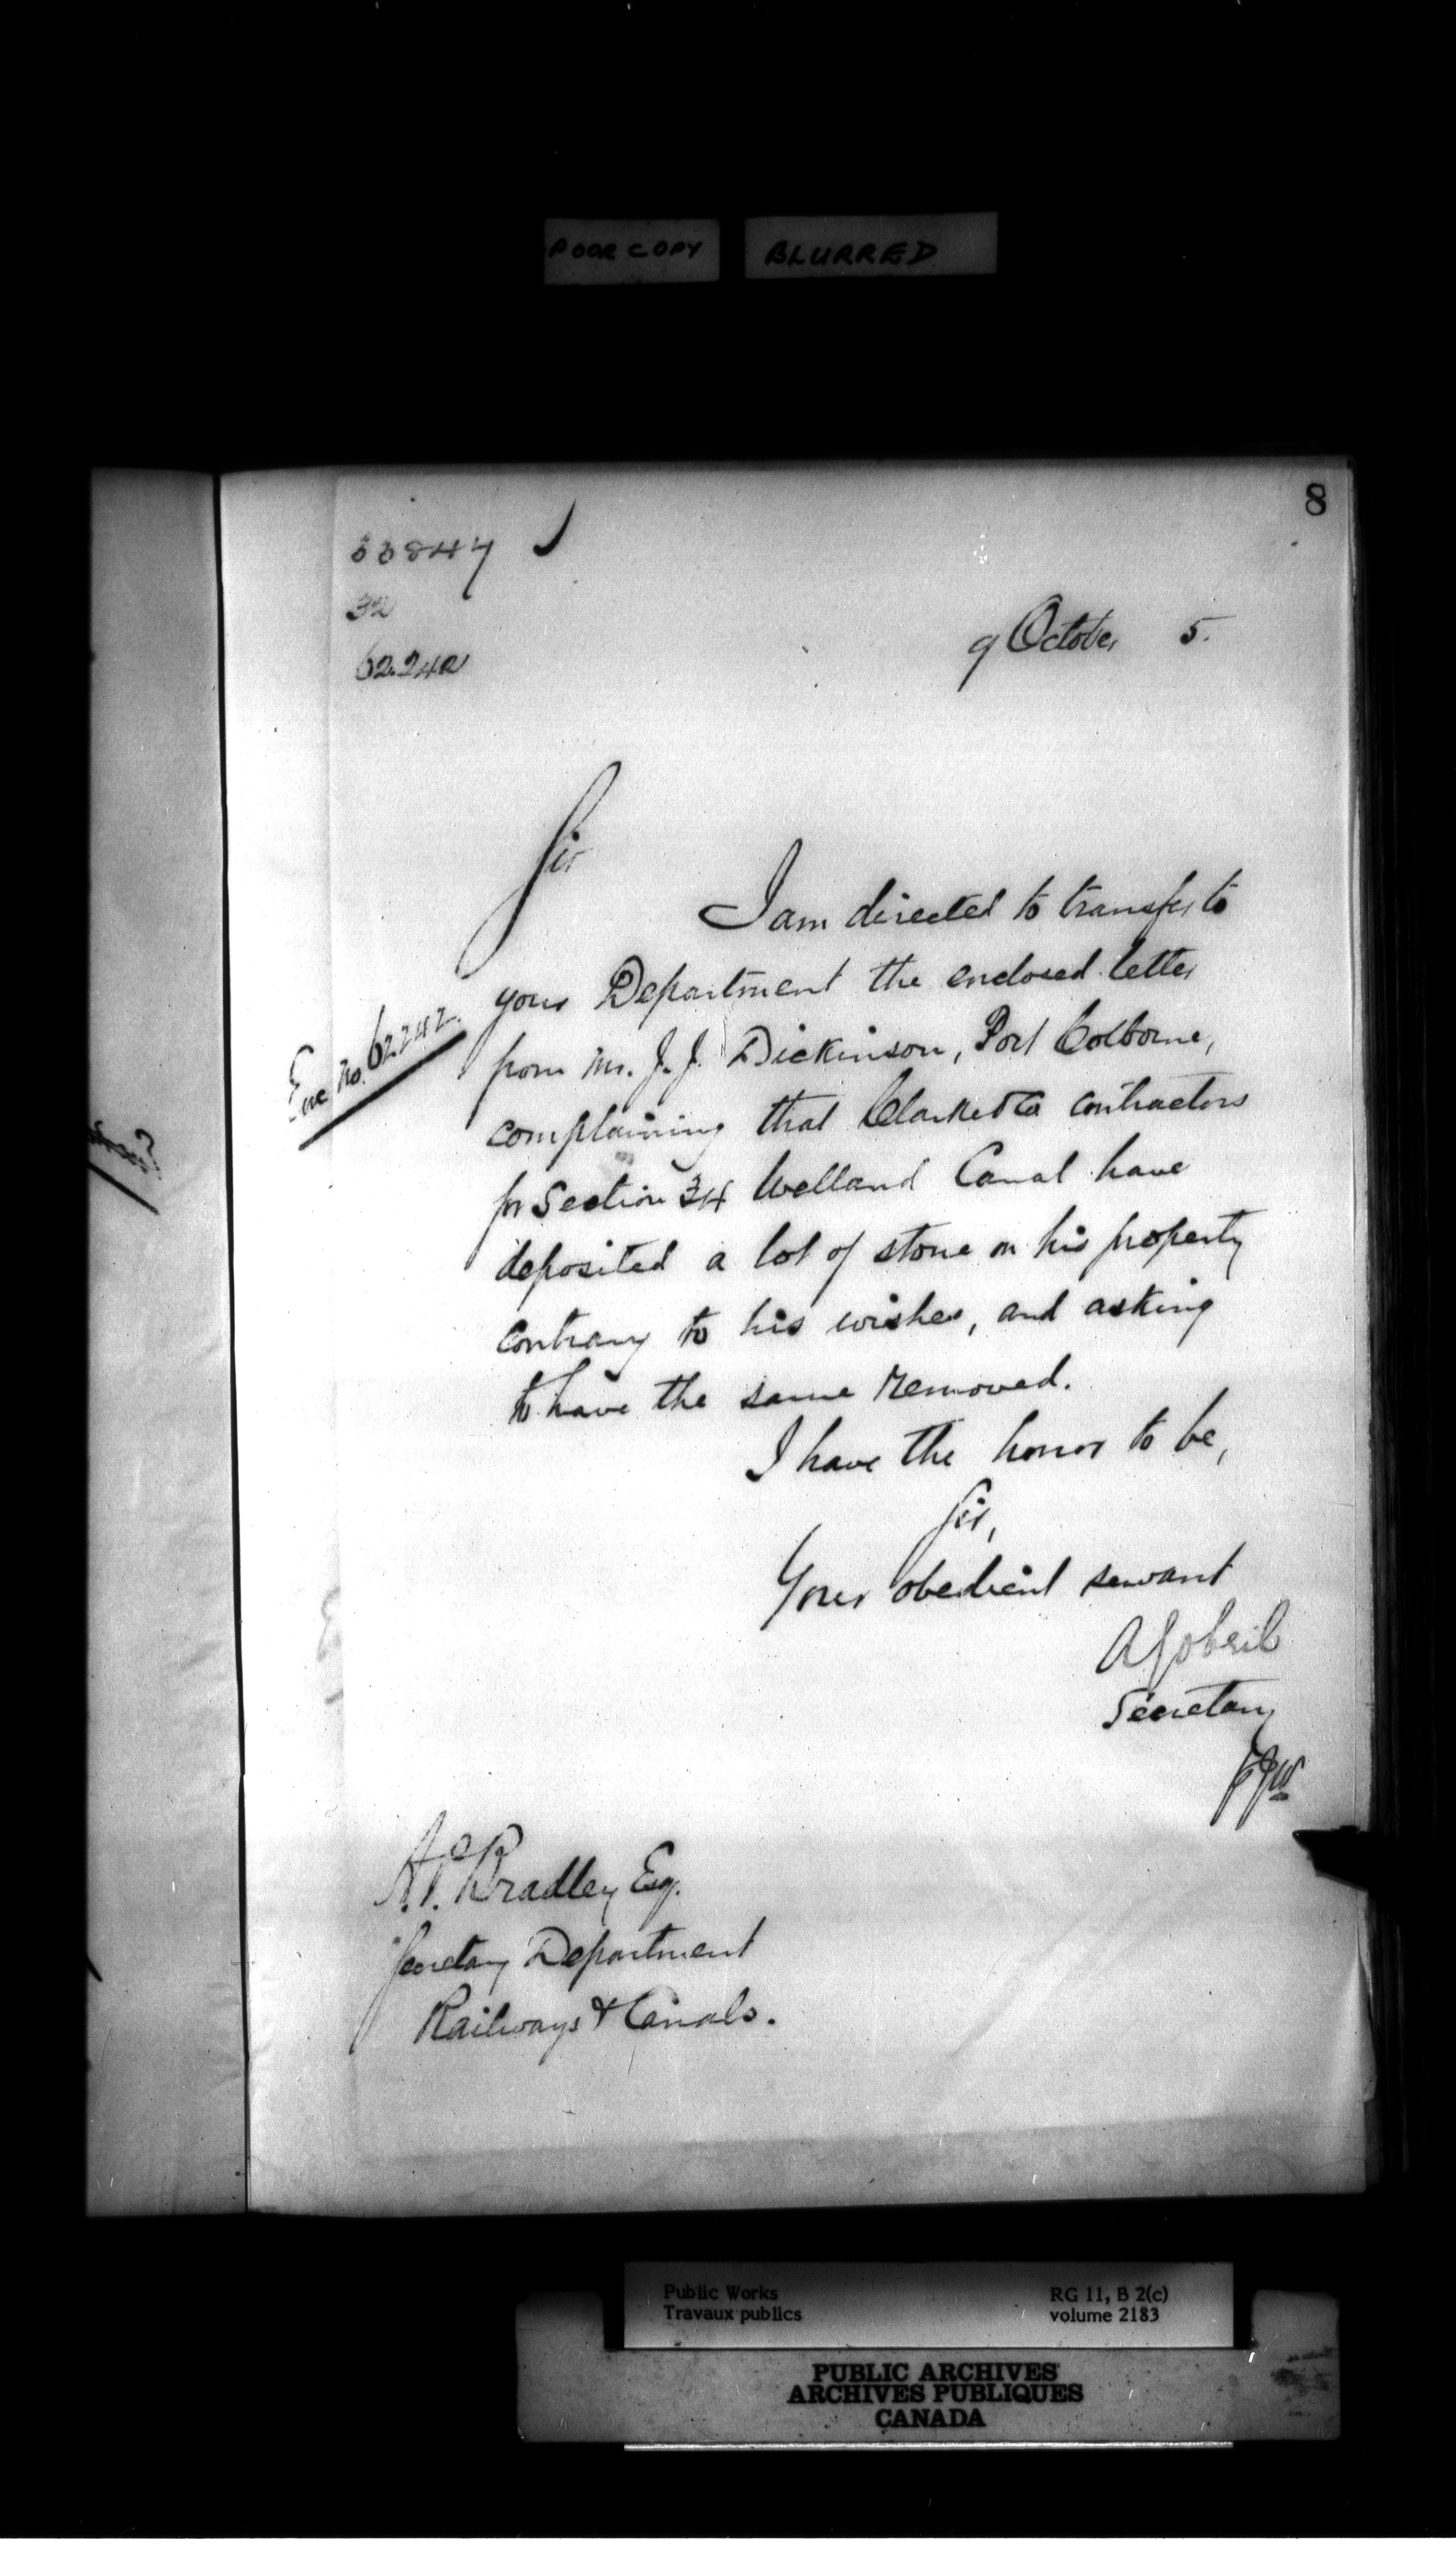 POOR COPY BLURRED
8
33847
32
62242
9 October 5.
Sir
I am directed to transfer to
your Department the enclosed letter
Enc No. 62242.
from Mr. J. J. Dickinson, Port Colborne,
complaining that Clarke & Co contractors
for Section 34 Welland Canal have
deposited a lot of stone on his property
contrary to his wishes, and asking
to have the same removed.
I have the honor to be,
Sir,
Your obedient servant
A Gobeil
Secretary
A. P. Bradley Esq.
Secretary Department
Railways & Canals.
Public Works RG 11, B 2(c)
Travaux publics volume 2183
PUBLIC ARCHIVES
ARCHIVES PUBLIQUES
CANADA